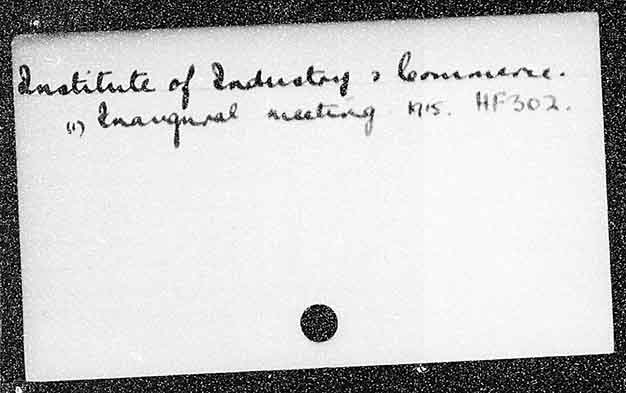 Institute of Industry & Commerce.
(1) Inaugural meeting 1915. HF302.